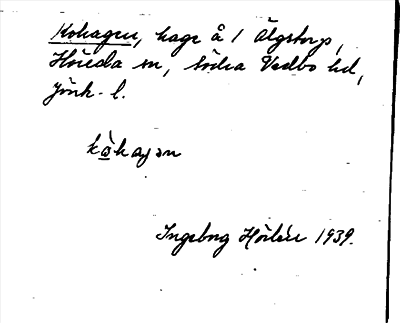 Kohagen, hage å 1 Älgstorp,
Höreda sn, södra Vedbo hd,
Jönk. l.
kòhagən
Ingeborg Hörlén 1939.